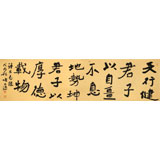 天行健
君子
以自強
不息
地勢坤
君子以
厚德
載物